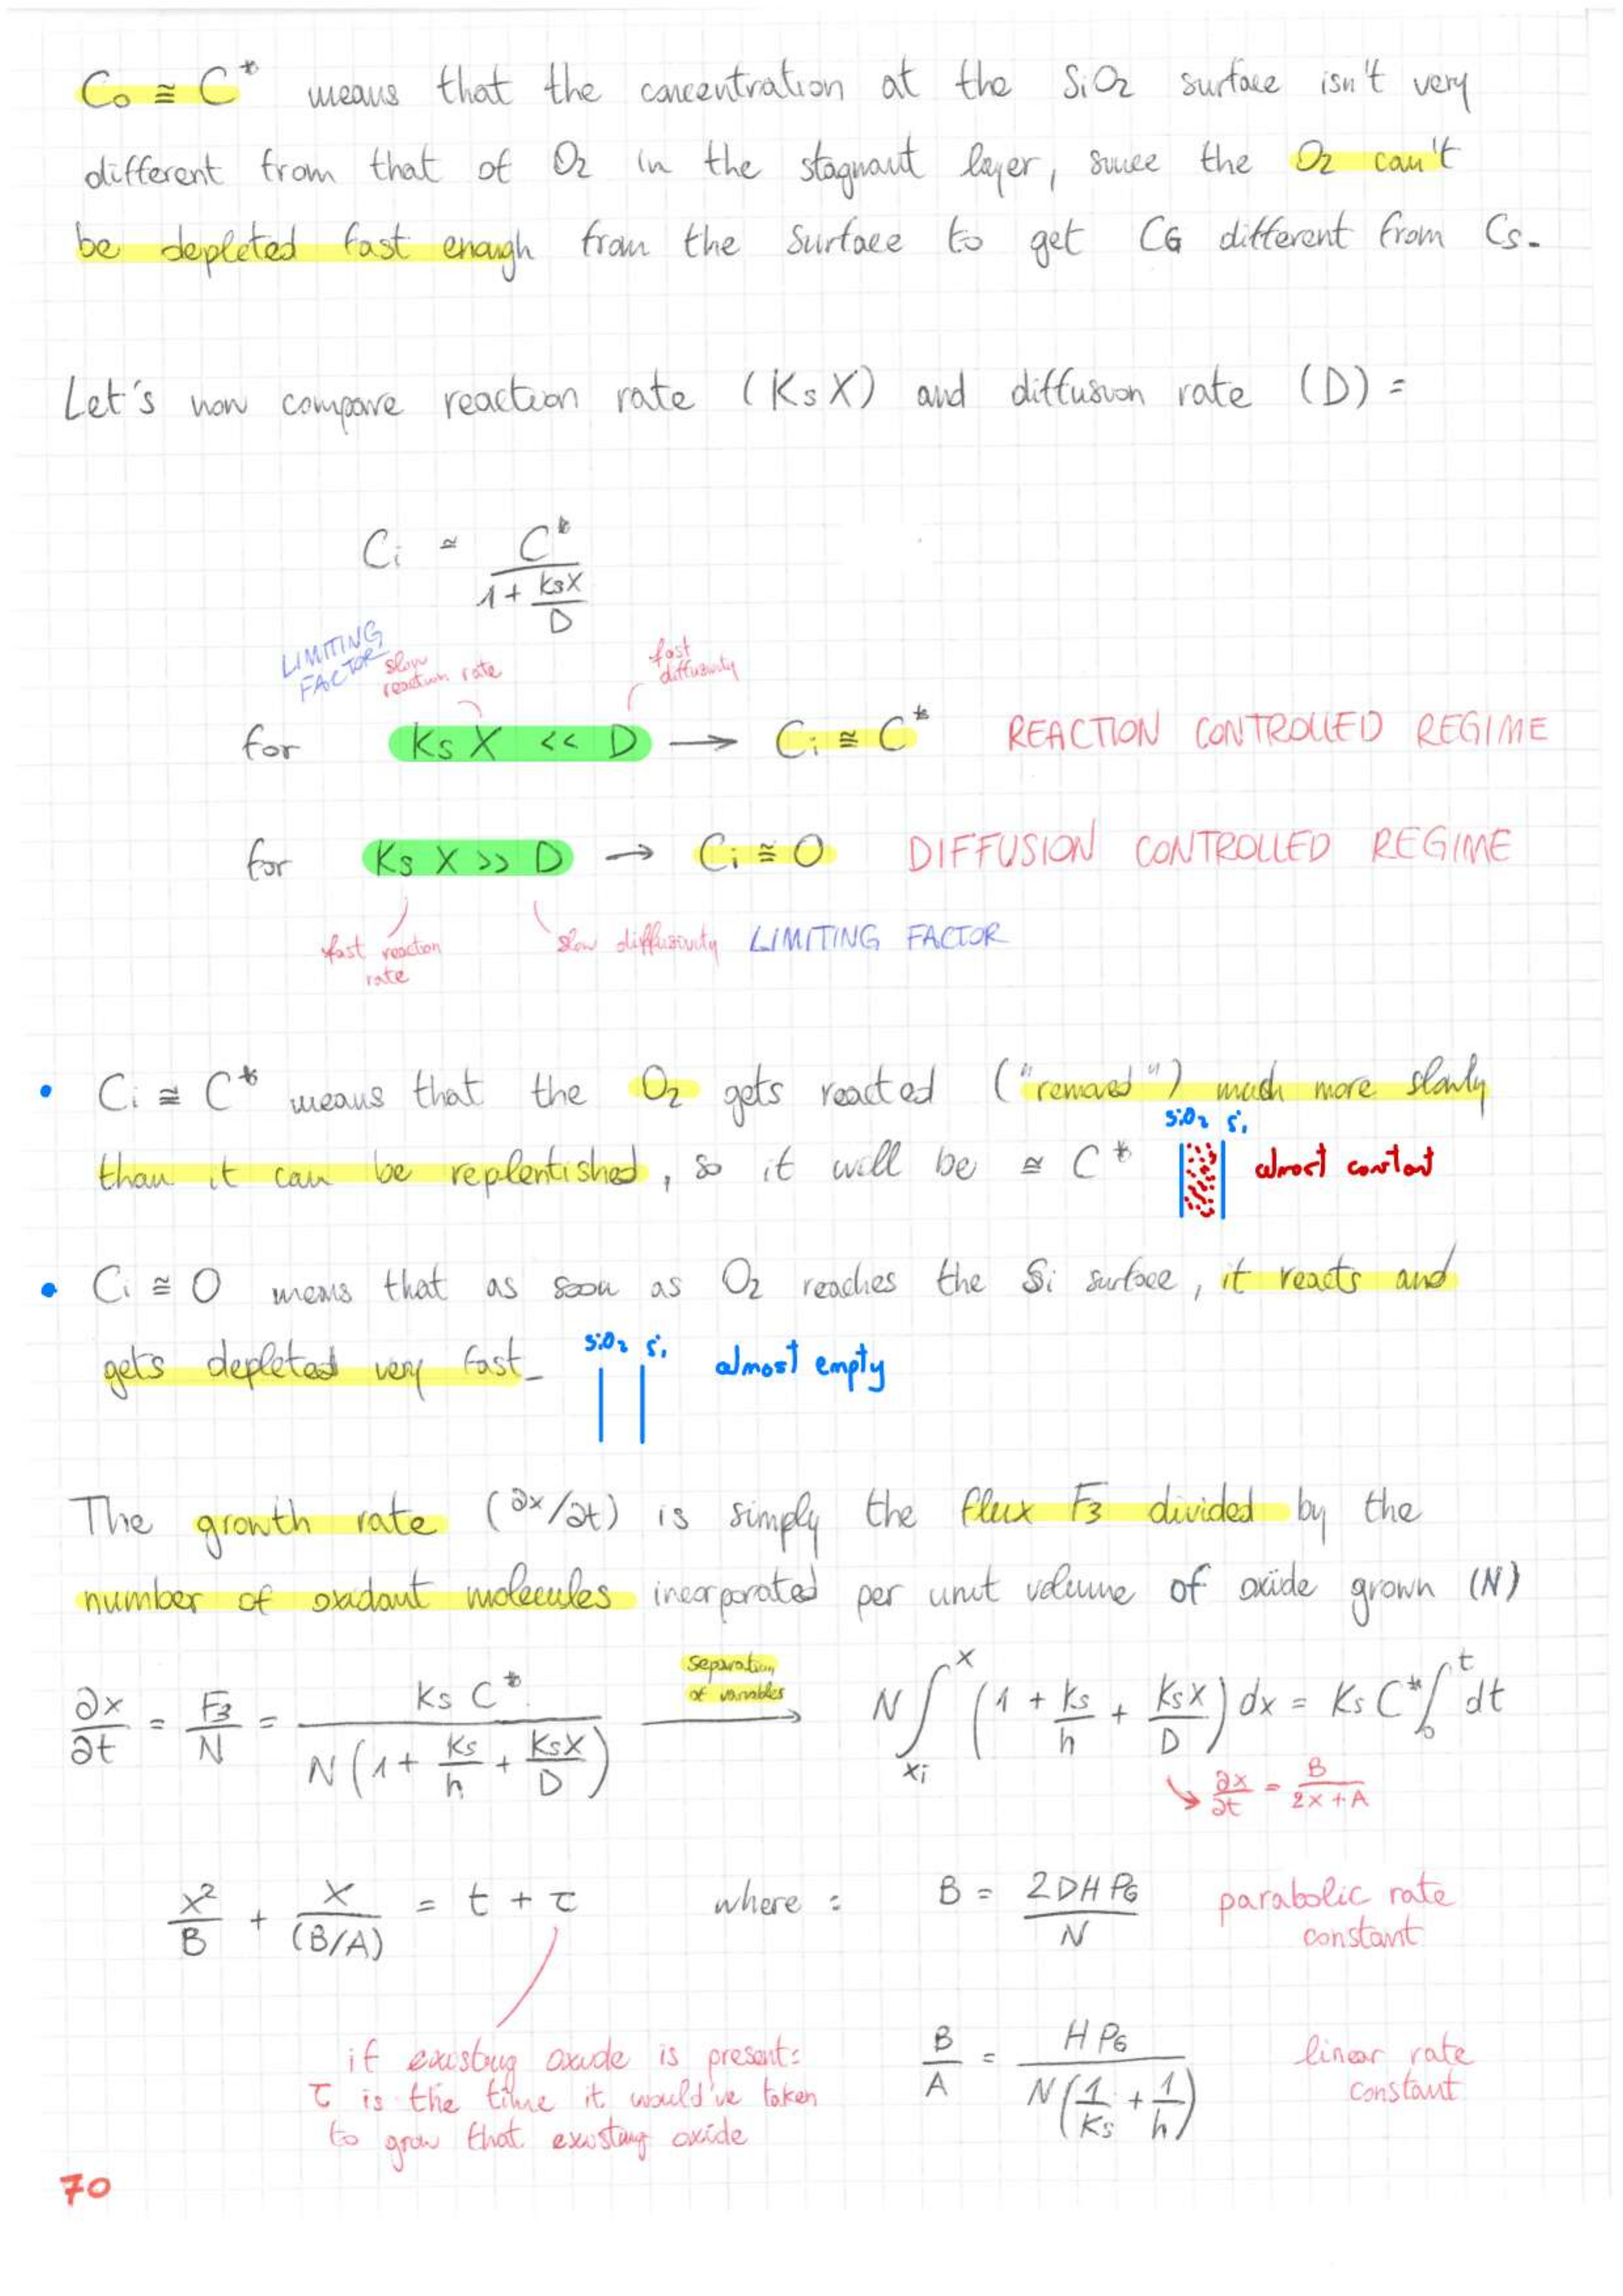 Co ≅ C* means that the concentration at the SiO2 surface isn't very
different from that of O2 in the stagnant layer, since the O2 can't
be depleted fast enough from the surface to get CG different from Cs.
Let's now compare reaction rate (Ks X) and diffusion rate (D) =
Ci ≃ C* / (1 + KsX/D)
LIMITING
FACTOR
slow
reaction rate
fast
diffusivity
for Ks X << D → Ci ≅ C* REACTION CONTROLLED REGIME
for Ks X >> D → Ci ≅ 0 DIFFUSION CONTROLLED REGIME
fast reaction
rate
slow diffusivity LIMITING FACTOR
• Ci ≅ C* means that the O2 gets reacted ("removed") much more slowly
SiO2 Si
than it can be replentished, so it will be ≅ C* almost constant
• Ci ≅ 0 means that as soon as O2 reaches the Si surface, it reacts and
gets depleted very fast_ SiO2 Si almost empty
The growth rate (∂x/∂t) is simply the flux F3 divided by the
number of oxidant molecules incorporated per unit volume of oxide grown (N)
separation
of variables
∂x/∂t = F3/N = Ks C* / N(1 + Ks/h + KsX/D) → N ∫xi^x (1 + Ks/h + KsX/D) dx = Ks C* ∫0^t dt
∂x/∂t = B/(2x + A)
x²/B + x/(B/A) = t + τ where : B = 2DHPG/N parabolic rate
constant
if existing oxide is present:
τ is the time it would've taken
to grow that existing oxide
B/A = HPG / N(1/Ks + 1/h) linear rate
constant
70